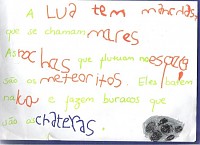 A LUA tem manchas,
que se chamam mares
As rochas que flutuam no espaço
são os meteoritos. Eles batem
na lua e fazem buracos que
são as crateras.